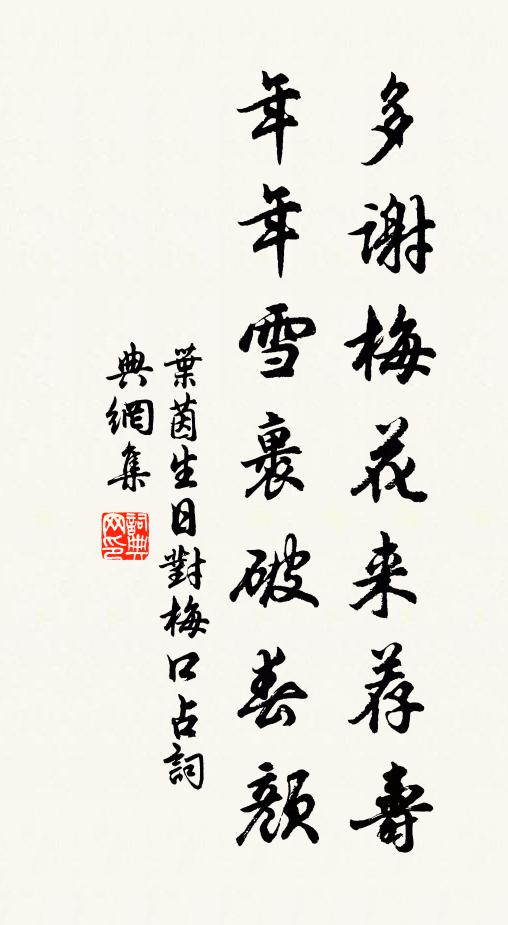 多谢梅花来荐壽
年年雪裹破春顔
葉茵生日對梅口占詞
典網集
詞典网印